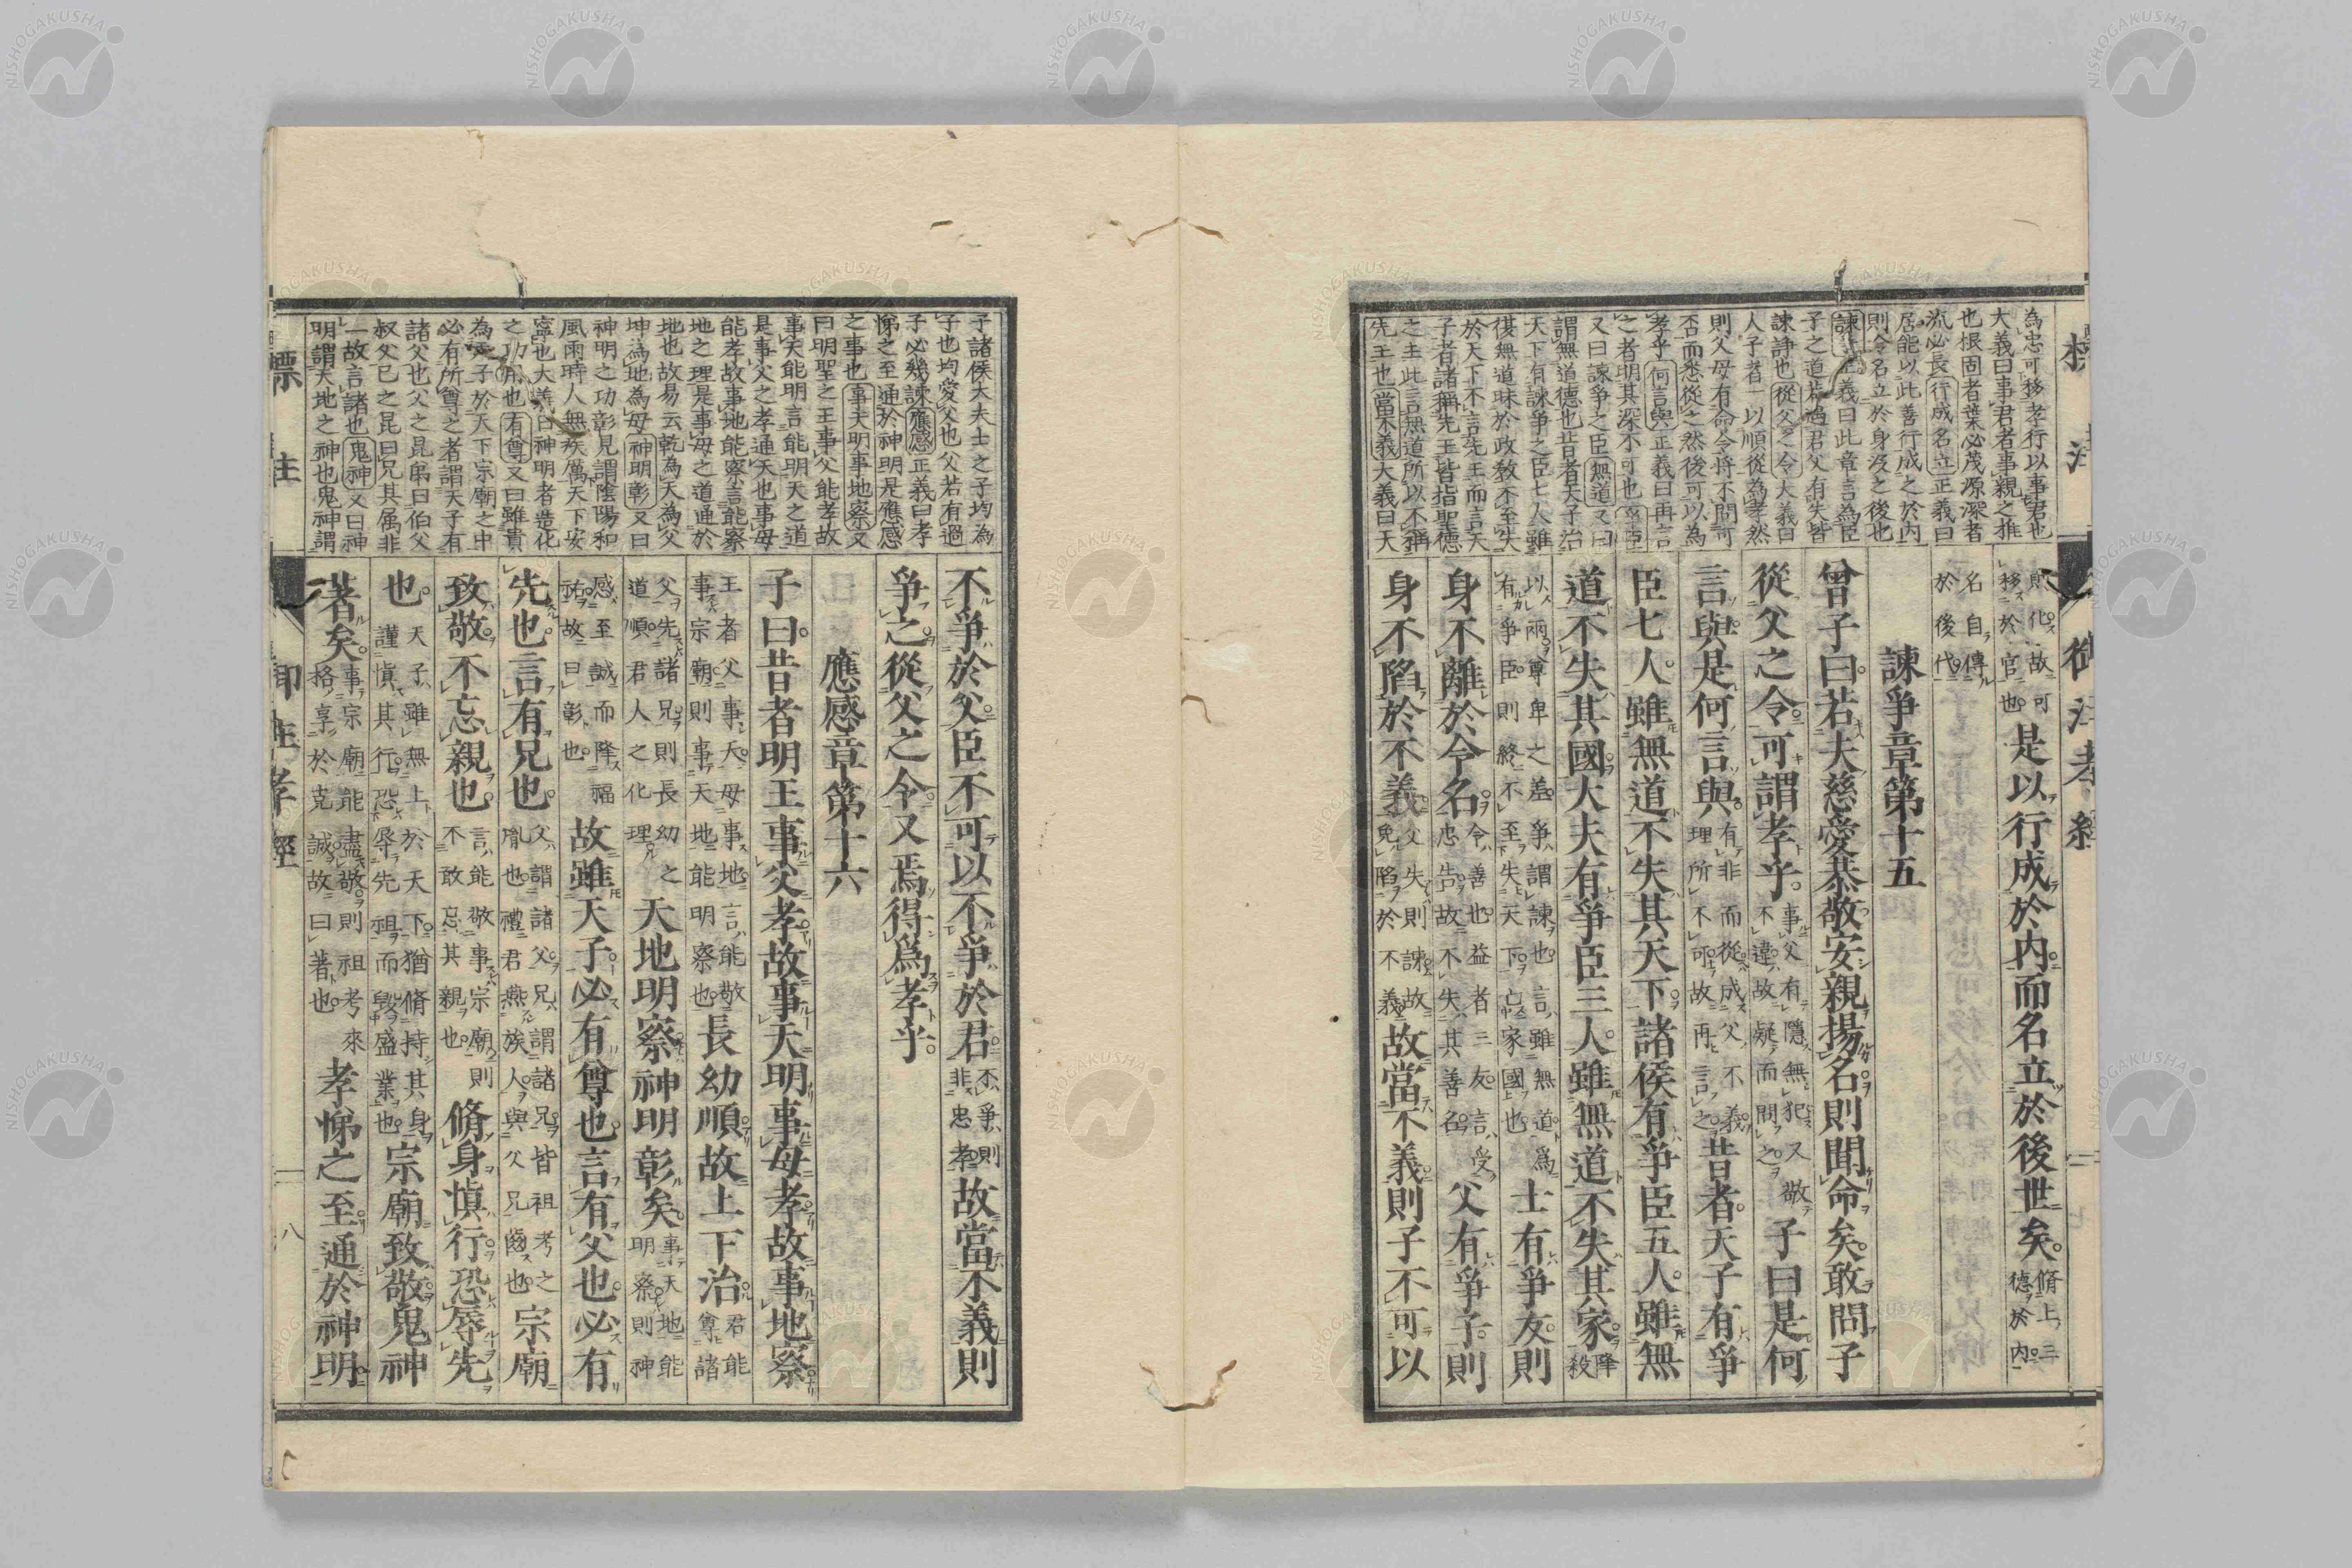 為忠可移孝行以事君也
大義曰事君者事親之推
也根固者葉必茂源深者
流必長行成名立正義曰
居能以此善行成之於内
則令名立於身没之後也
諫 正義曰此章言為臣
子之道若遇君父有失皆
諫諍也從父之令大義曰
人子者一以順從為孝然
則父母有命令将不問可
否而悉從之然後可以為
孝乎何言與正義曰再言
之者明其深不可也爭臣
又曰諫爭之臣無道又曰
謂無道德也昔者天子治
天下有諫爭之臣七人雖
復無道昧於政教不至失
於天下不言先王而言天
子者諸稱先王皆指聖德
之主此言無道所以不稱
先王也當不義大義曰天
則化故可移於官也是以行成於内而名立於後世矣脩上三德於内
名自傳於後代
諫爭章第十五
曾子曰若夫慈愛恭敬安親揚名則聞命矣敢問子
從父之令可謂孝乎事父有隱無犯又敬不違故疑而問之子曰是何
言與是何言與有非而從成父不義理所不可故再言之昔者天子有爭
臣七人雖無道不失其天下諸侯有爭臣五人雖無
道不失其國大夫有爭臣三人雖無道不失其家降殺
以兩尊卑之差爭謂諫也言雖無道爲有爭臣則終不至失天下亡家國也士有爭友則
身不離於令名令善也益者三友言受忠告故不失其善名父有爭子則
身不陷於不義父失則諫故免陷於不義故當不義則子不可以
子諸侯大夫士之子均為
子也均愛父也父若有過
子必幾諫應感正義曰孝
悌之至通於神明是應感
之事也事天明事地察又
曰明聖之王事父能孝故
事天能明言能明天之道
是事父之孝通天也事母
能孝故事地能察言能察
地之理是事母之道通於
地也故易云乾為天為父
坤為地為母神明彰又曰
神明之功彰見謂陰陽和
風雨時人無疾厲天下安
寧也大義曰神明者造化
之功用也有尊又曰雖貴
為天子於天下宗廟之中
必有所尊之者謂天子有
諸父也父之昆弟曰伯父
叔父已之昆曰兄其属非
一故言諸也鬼神又曰神
明謂天地之神也鬼神謂
不爭於父臣不可以不爭於君不爭則非忠孝故當不義則
爭之從父之令又焉得爲孝乎
應感章第十六
子曰昔者明王事父孝故事天明事母孝故事地察
王者父事天母事地言能敬事宗廟則事天地能明察也長幼順故上下治君能尊諸
父先諸兄則長幼之道順君人之化理天地明察神明彰矣事天地能明察則神
感至誠而降福祐故曰彰也故雖天子必有尊也言有父也必有
先也言有兄也父謂諸父兄謂諸兄皆祖考之胤也禮君燕族人與父兄齒也宗廟
致敬不忘親也言能敬事宗廟則不敢忘其親也脩身愼行恐辱先
也天子雖無上於天下猶脩持其身謹愼其行恐辱先祖而毀盛業也宗廟致敬鬼神
著矣事宗廟能盡敬則祖考來格享於克誠故曰著也孝悌之至通於神明
標註
御注孝經
八